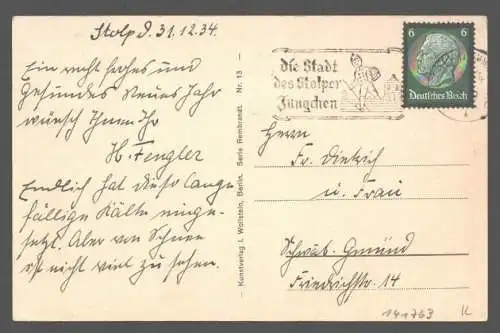 Stolp d. 31.12.34.
Ein recht frohes und
Gesundes Neues Jahr
wünsch Ihnen Ihr
H. Fengler
Endlich hat die so lange
fällige Kälte einge-
setzt. Aber von Schnee
ist nicht viel zu sehen.
Kunstverlag I. Wollstein, Berlin. Serie Rembrandt. Nr. 13
die Stadt
des Stolper
Jüngchen
6 6
Deutsches Reich
Herrn
Fr. Dietrich
u. Frau
Schwäb. Gmünd
Friedrichstr. 14
141763